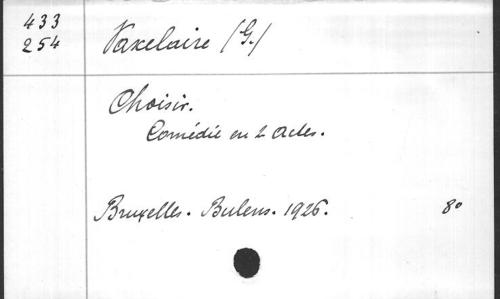 433
254
Vaxelaire (G.)
Choisir.
Comédie en 2 actes.
Bruxelles. Bulens. 1926. 8°